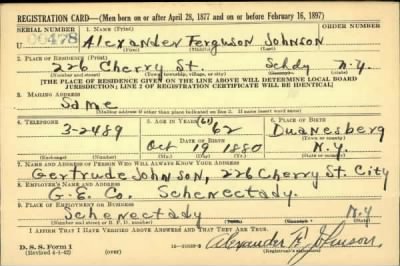 REGISTRATION CARD—(Men born on or after April 28, 1877 and on or before February 16, 1897)
SERIAL NUMBER 1. NAME (Print)
U 00478 Alexander Ferguson Johnson
(First) (Middle) (Last)
2. PLACE OF RESIDENCE (Print)
226 Cherry St. Schdy N.Y.
(Number and street) (Town, township, village, or city) (County) (State)
[THE PLACE OF RESIDENCE GIVEN ON THE LINE ABOVE WILL DETERMINE LOCAL BOARD
JURISDICTION; LINE 2 OF REGISTRATION CERTIFICATE WILL BE IDENTICAL]
3. MAILING ADDRESS
Same
[Mailing address if other than place indicated on line 2. If same insert word same]
4. TELEPHONE 5. AGE IN YEARS (61) 6. PLACE OF BIRTH
3-2489 62 Duanesberg
DATE OF BIRTH (Town or county)
Oct 19 1880 N.Y.
(Exchange) (Number) (Mo.) (Day) (Yr.) (State or country)
7. NAME AND ADDRESS OF PERSON WHO WILL ALWAYS KNOW YOUR ADDRESS
Gertrude Johnson, 226 Cherry St. City
8. EMPLOYER'S NAME AND ADDRESS
G.E. Co. Schenectady.
9. PLACE OF EMPLOYMENT OR BUSINESS
Schenectady N.Y
(Number and street or R. F. D. number) (Town) (County) (State)
I AFFIRM THAT I HAVE VERIFIED ABOVE ANSWERS AND THAT THEY ARE TRUE.
D. S. S. Form 1
(Revised 4-1-42) (over) Alexander F. Johnson
(Registrant's signature)